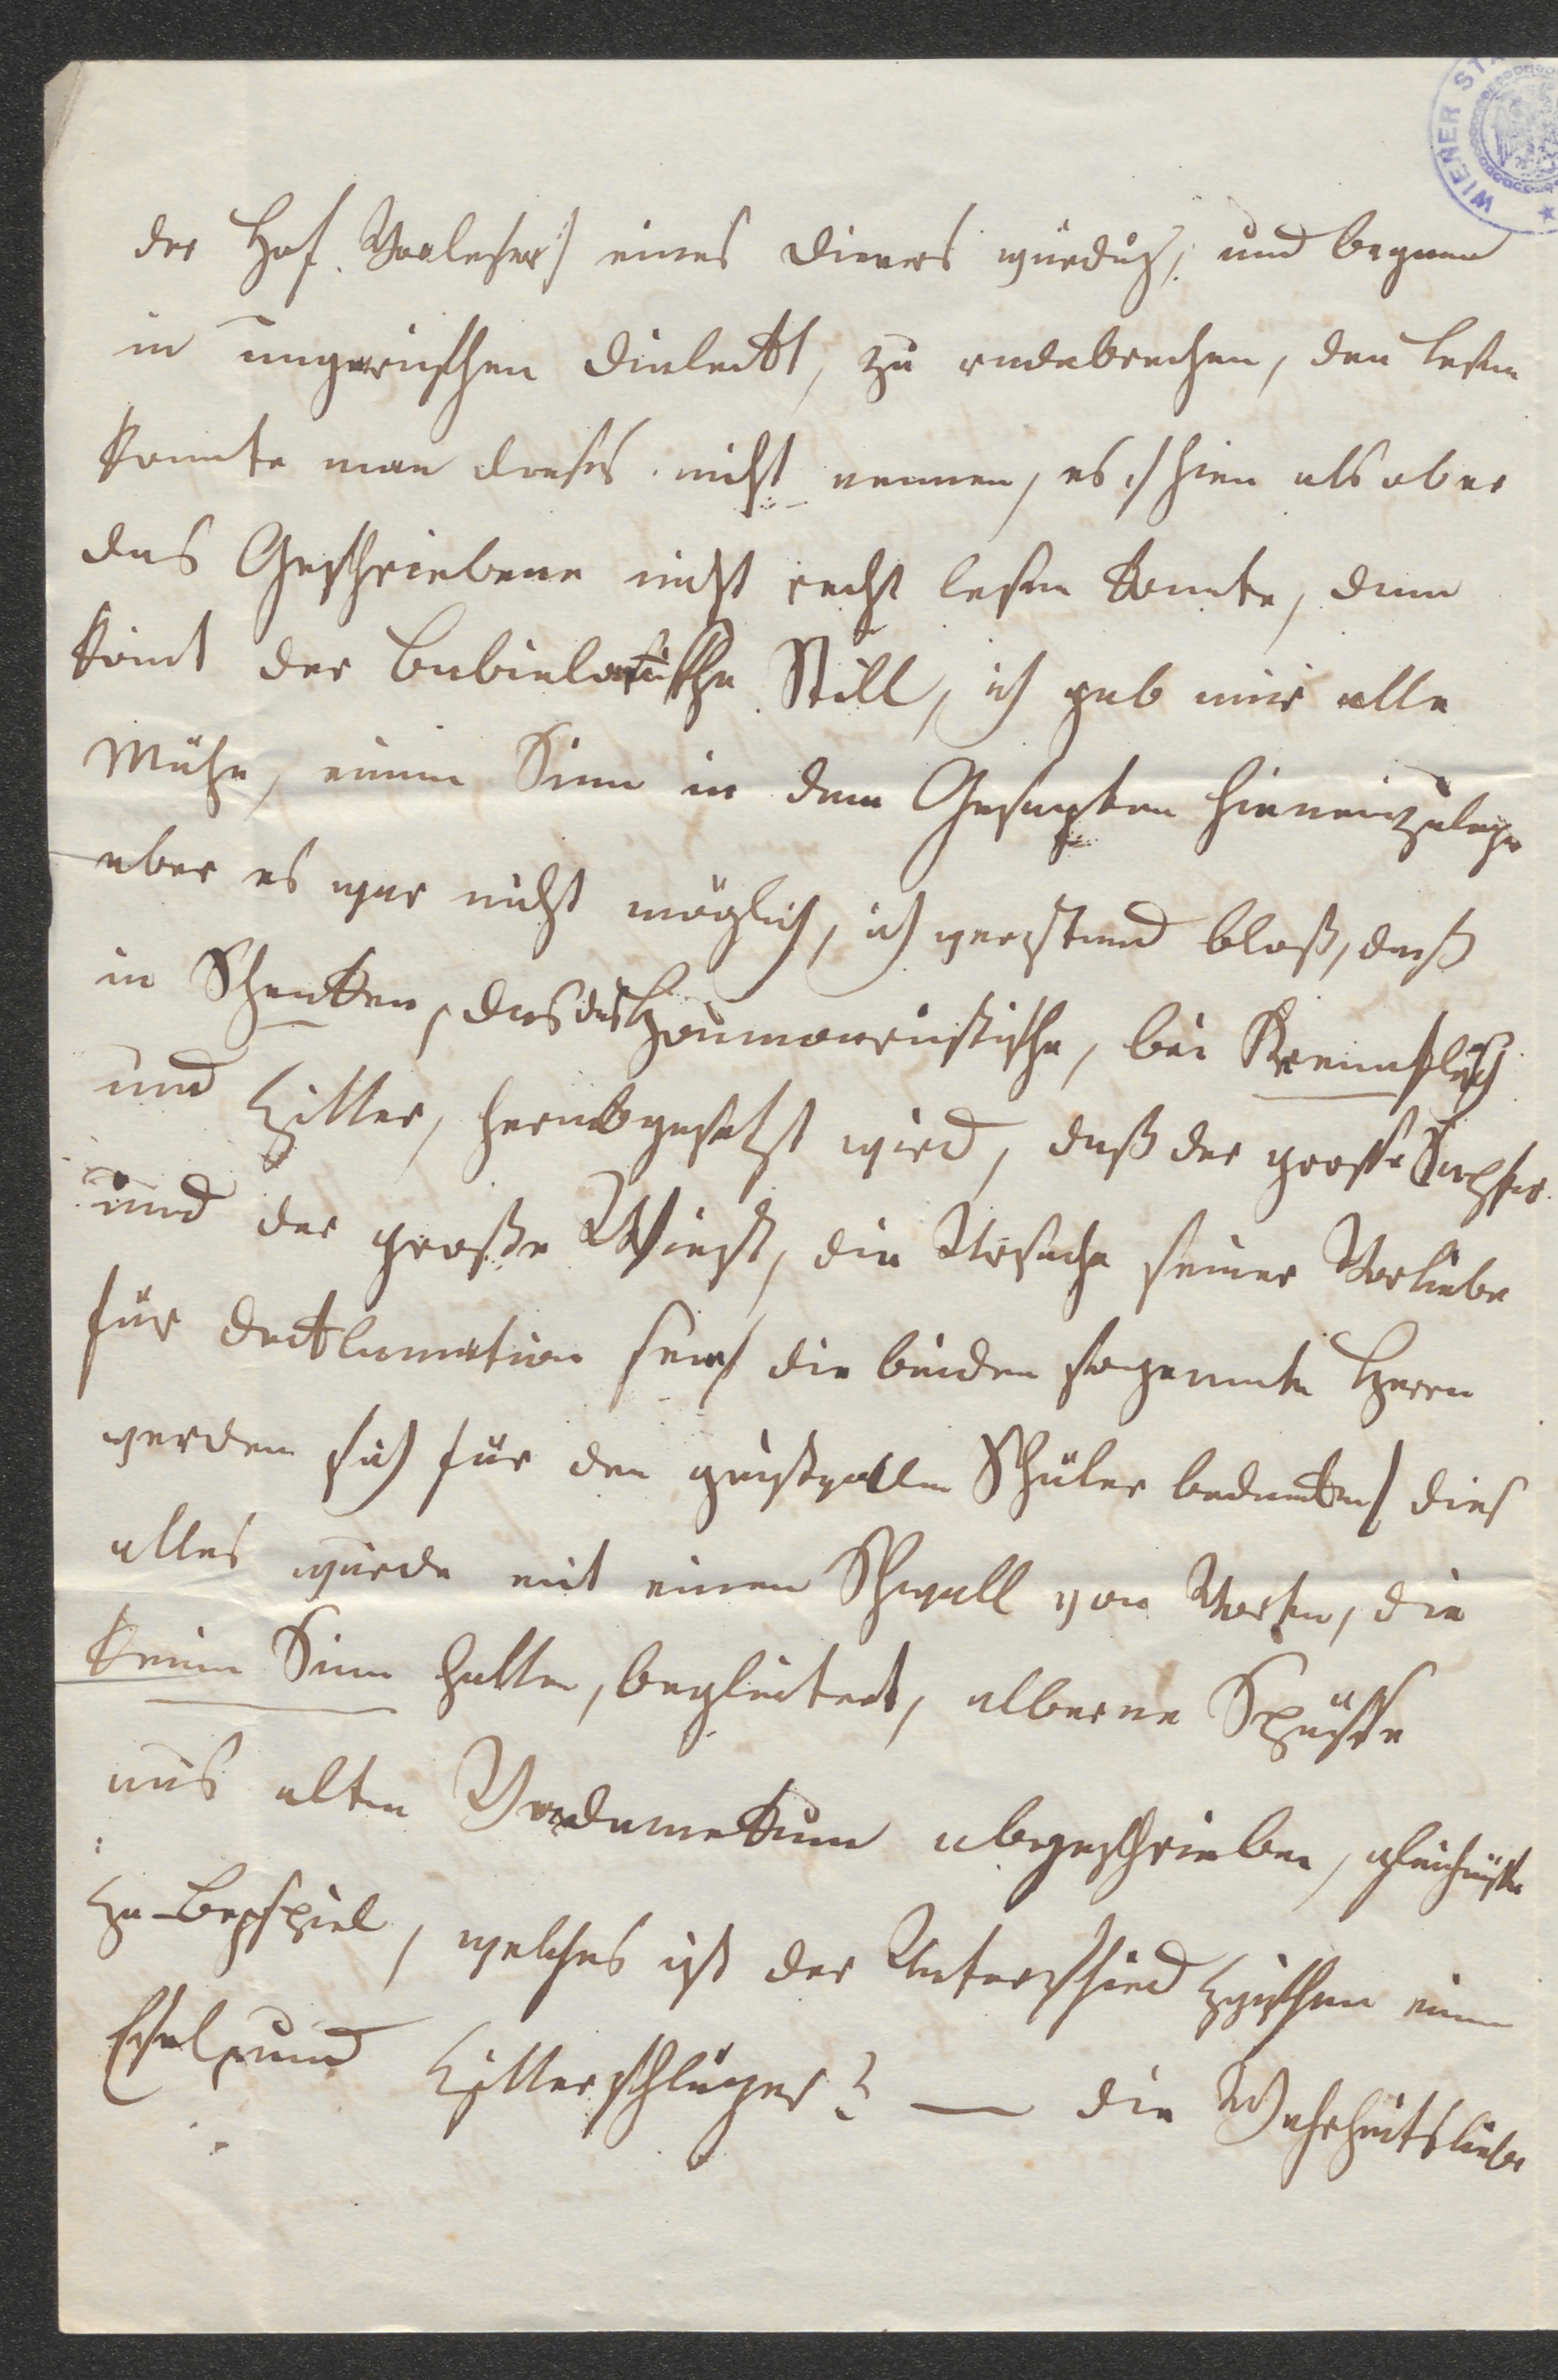 WIENER ST
der Hof. Vorleser) eines Dieners würdig, und begann
in ungarischen Dialectt, zu radebrechen, den lesen
konnte man dieses nicht nennen, es schien als ob er
das Geschriebene nicht recht lesen konnte, dann
kömt der Still, ich gab mir alle
Mühe, einen Sinn in dem Gesagten hieneinzulegen
aber es war nicht möglich, ich verstand bloß, daß
in Schenken, das das Houmouristische, bei
und Zitter, herabgesetzt wird, daß der große Saphir
und der große Wiest, die Ursache seiner Vorliebe
für Decklamation sein / die beiden sogenante Herrn
werden sich für den geistvollen Schüler bedanken / dies
alles wurde mit einen Schwall von Worten, die
keinen Sinn hatten, begleitet, alberne Spässe
aus alten Vademekum abgeschrieben, gleichnisse
zu Beyspiel, welches ist der Unterschied zwischen einen
Esel und Zitterschläger? — die Wahrheitsliebe